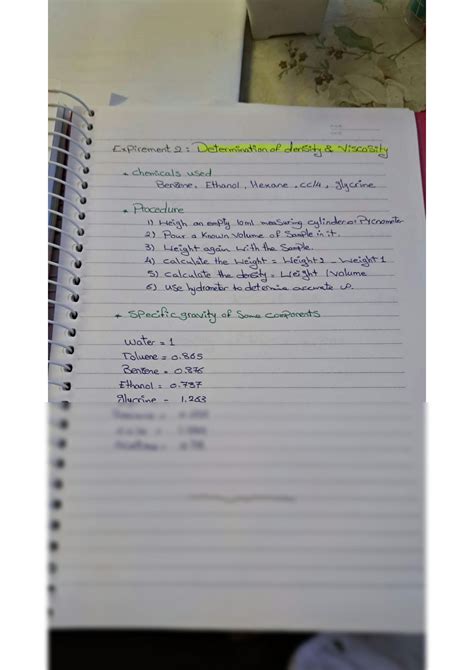 Expirement 2: Determination of density & Viscosity
* chemicals used
Benzene, Ethanol, Hexane, ccl4, glycrine
* Procedure
1) Weigh an empty 10ml measuring cylinder or Pycnometer
2) Pour a known volume of Sample in it.
3) Weight again with the Sample.
4) calculate the weight = Weight - Weight 1
5) calculate the density = Weight / volume
6) use hydrometer to determine accurate
* specific gravity of some components
Water = 1
Toluene = 0.865
Benzene = 0.876
Ethanol = 0.787
glycrine = 1.263